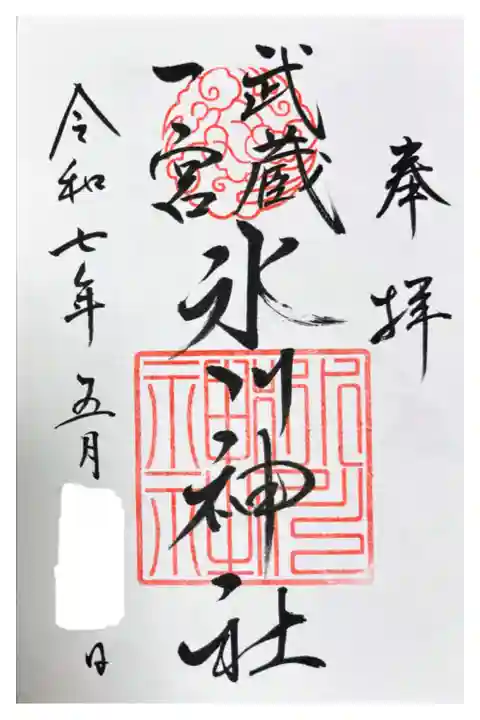 奉拝
武蔵
一宮
氷川神社
氷川神社
令和七年五月 日